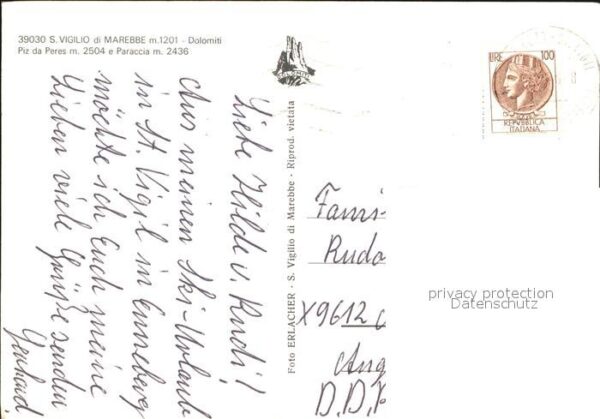 39030 S. VIGILIO di MAREBBE m.1201 - Dolomiti
Piz da Peres m. 2504 e Paraccia m. 2436
Liebe Hilde u. Rudi!
Aus meinen Ski-Urlaub
in St. Vigil in Enneberg
möchte ich Euch meine
Lieben viele Grüße senden
Gerhard
Foto ERLACHER - S. Vigilio di Marebbe - Riprod. vietata
LIRE 100
REPVBBLICA
ITALIANA
Fami-
Rudo
X9612
Aug
D.D.R
privacy protection
Datenschutz